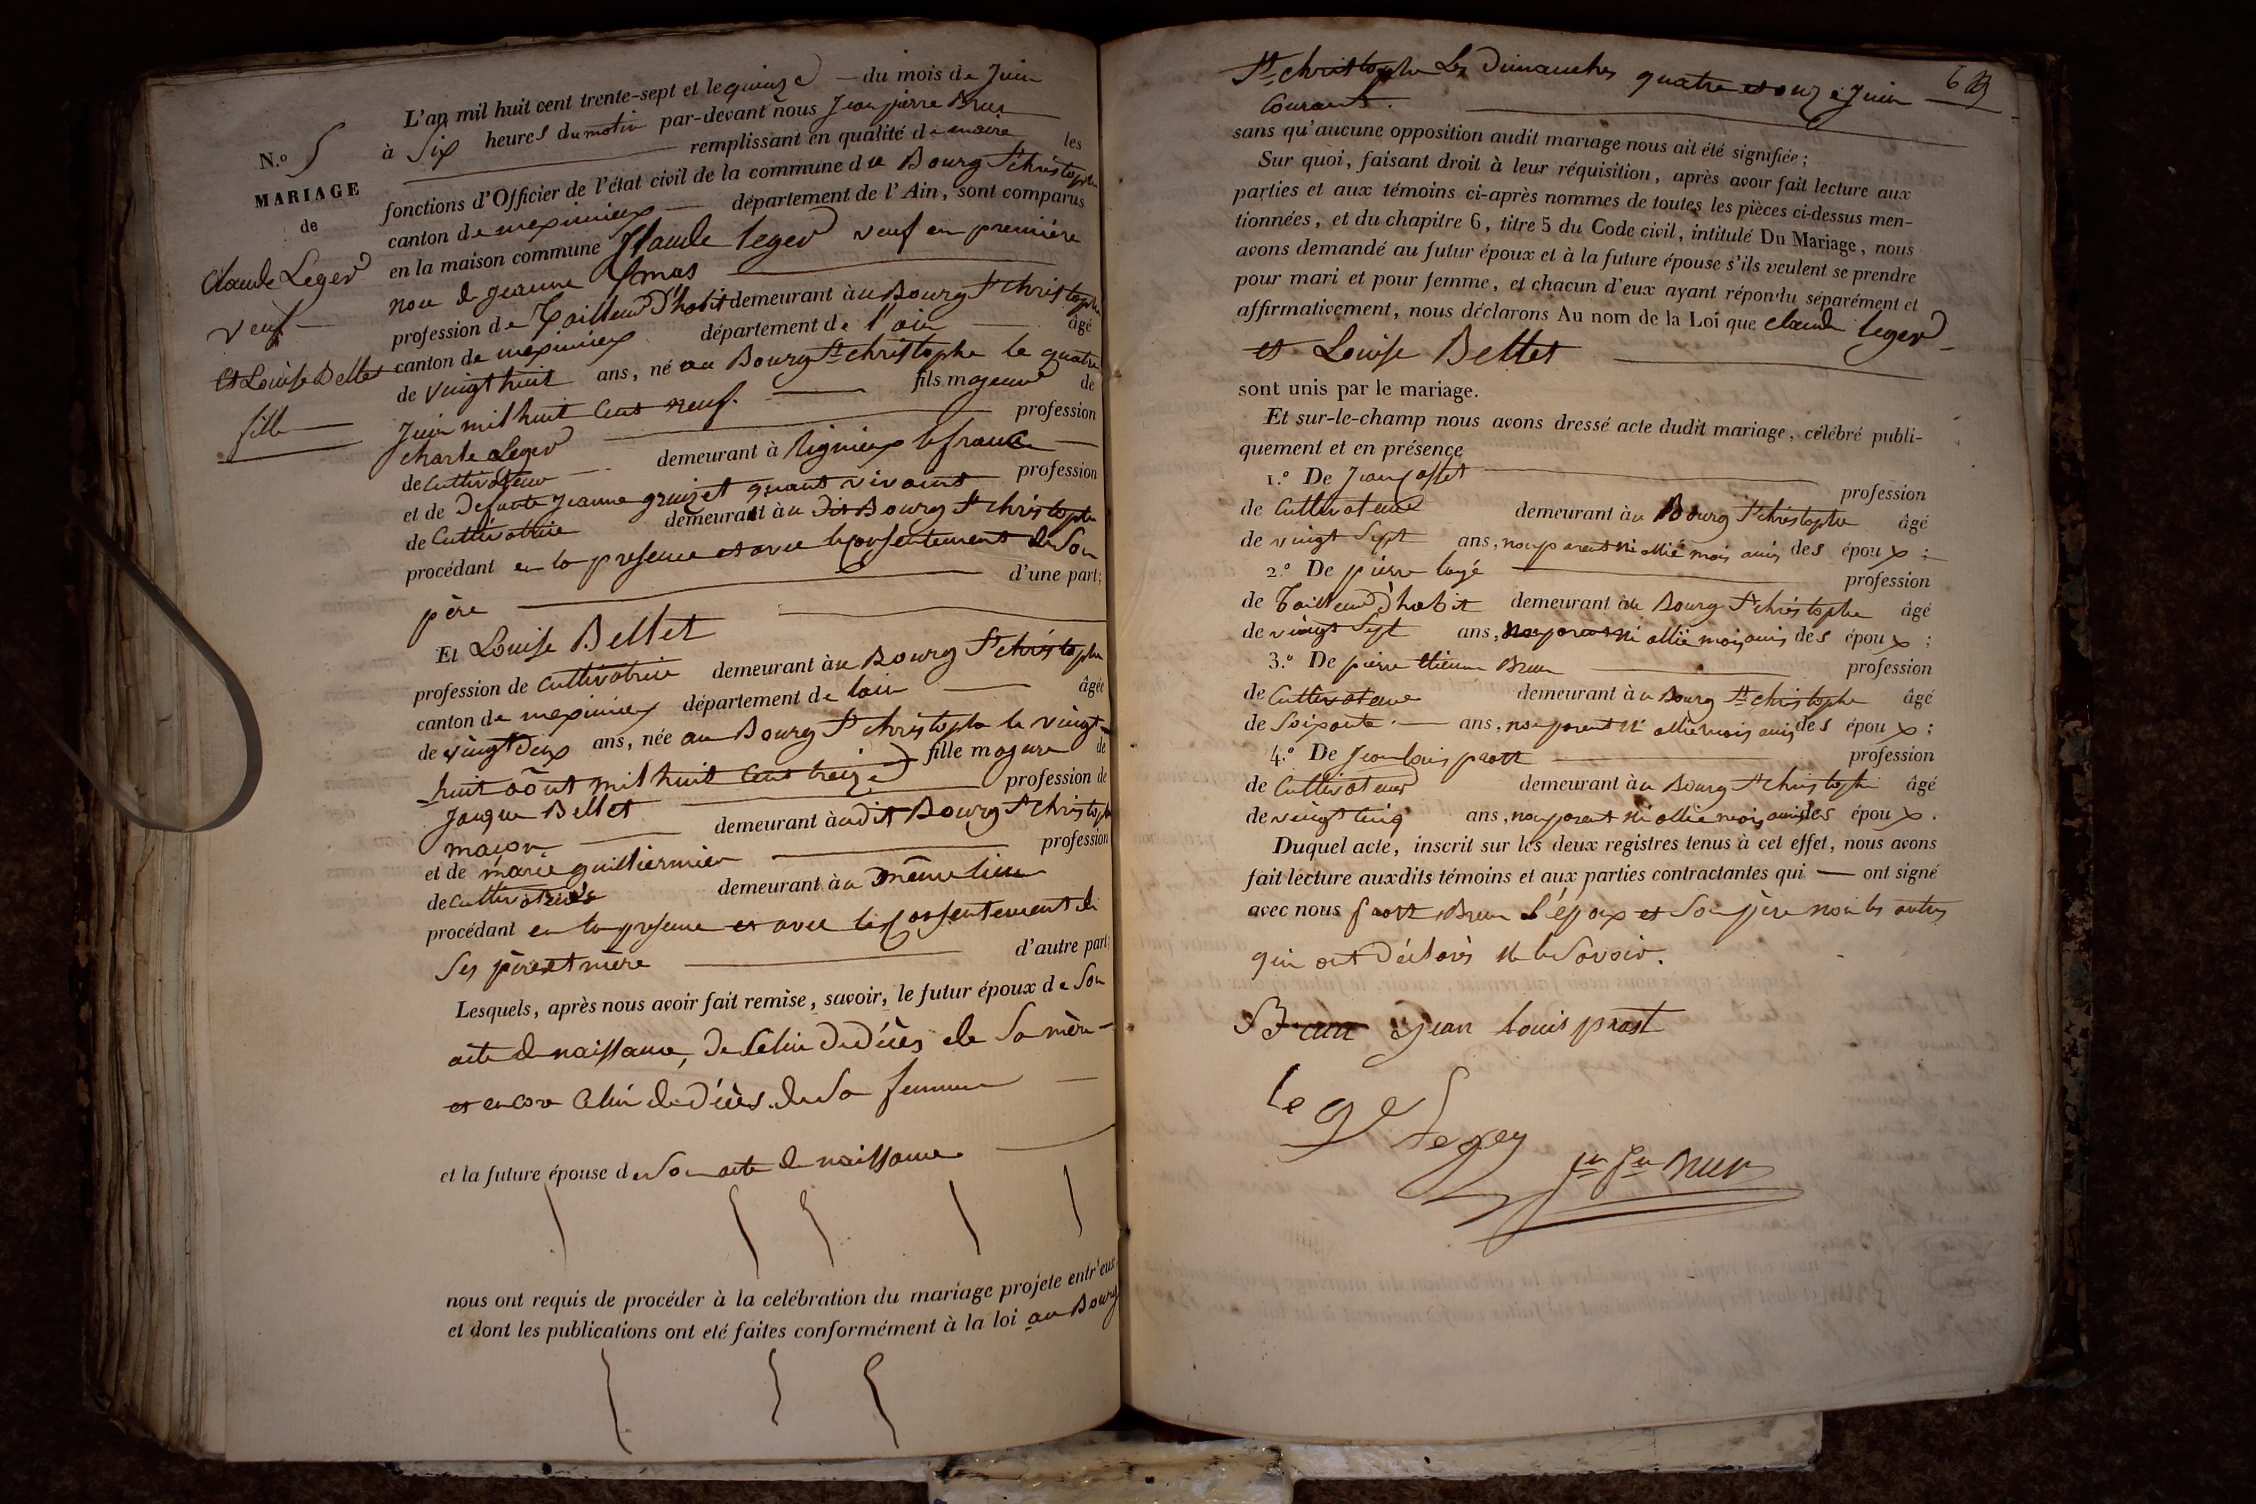 N.o 5
MARIAGE
de
Claude Leger
veuf
et Louise Bellet
fille
L'an mil huit cent trente-sept et le quinze du mois de Juin
à Six heures du matin par-devant nous Jean pierre Brun
remplissant en qualité de maire les
fonctions d'Officier de l'état civil de la commune du Bourg St christophe
canton de meximieux département de l'Ain, sont comparus
en la maison commune Claude leger veuf en première
noce de jeanne
profession de Tailleur D'habit demeurant au Bourg St christophe
canton de meximieux département de l'ain âgé
de vingt huit ans, né au Bourg St christophe le quatre
Juin mil huit cent neuf. fils majeur de
charle Leger profession
de Cultivateur demeurant à Rignieux le franc
et de Defunte jeanne gruizet quant vivant profession
de Cultivatrice demeurant au dit Bourg St christophe
procédant en la presence et avec le consentement de Son
père d'une part;
Et Louise Bellet
profession de Cultivatrice demeurant au Bourg St christophe
canton de meximieux département de lain âgée
de vingt Deux ans, née au Bourg St christophe le vingt
huit août mil huit Cent treize fille majeure de
Jacque Bellet profession de
maçon demeurant au dit Bourg St christophe
et de marie guilliermier profession
de cultivatrice demeurant au même lieu
procédant en la presence et avec le consentement de
Ses père et mère d'autre part;
Lesquels, après nous avoir fait remise, savoir, le futur époux de Son
acte de naissance, de Celui du décès de Sa mère
et encore Celui de décès de Sa femme
et la future épouse de Son acte de naissance
nous ont requis de procéder à la celébration du mariage projeté entr'eux
et dont les publications ont eté faites conformément à la loi au Bourg
St christophe Les Dimanches quatre et onze Juin
Courant.
sans qu'aucune opposition audit mariage nous ait été signifiée;
Sur quoi, faisant droit à leur réquisition, après avoir fait lecture aux
parties et aux témoins ci-après nommes de toutes les pièces ci-dessus men-
tionnées, et du chapitre 6, titre 5 du Code civil, intitulé Du Mariage, nous
avons demandé au futur époux et à la future épouse s'ils veulent se prendre
pour mari et pour femme, et chacun d'eux ayant répondu séparément et
affirmativement, nous déclarons Au nom de la Loi que claude leger
et Louise Bellet
sont unis par le mariage.
Et sur-le-champ nous avons dressé acte dudit mariage, célébré publi-
quement et en présence
1.o De Jean profession
de Cultivateur demeurant au Bourg St christophe âgé
de vingt Sept ans, non parent ni allié mais amis des époux;
2.o De pierre profession
de Tailleur d'habit demeurant au Bourg St christophe âgé
de vingt Sept ans, non parent ni allié mais amis des époux;
3.o De pierre étienne Brun profession
de Cultivateur demeurant au Bourg St christophe âgé
de Soixante ans, non parent ni allié mais amis des époux;
4.o De Jean louis prost profession
de Cultivateur demeurant au Bourg St christophe âgé
de vingt cinq ans, non parent ni allié mais amis des époux.
Duquel acte, inscrit sur les deux registres tenus à cet effet, nous avons
fait lecture auxdits témoins et aux parties contractantes qui ont signé
avec nous prost Brun L'époux et Son père non les autres
qui ont déclarés ne le Savoir.
Brun Jean louis prost
Leger
Brun